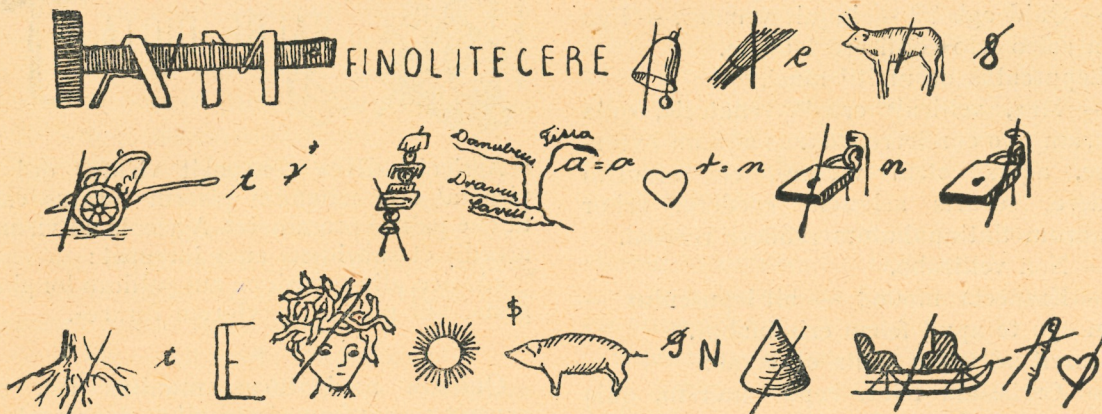 FINOLITECERE e 8
t r' Danubius Tisia Dravus Savus a=a t=n n
t E $ g N